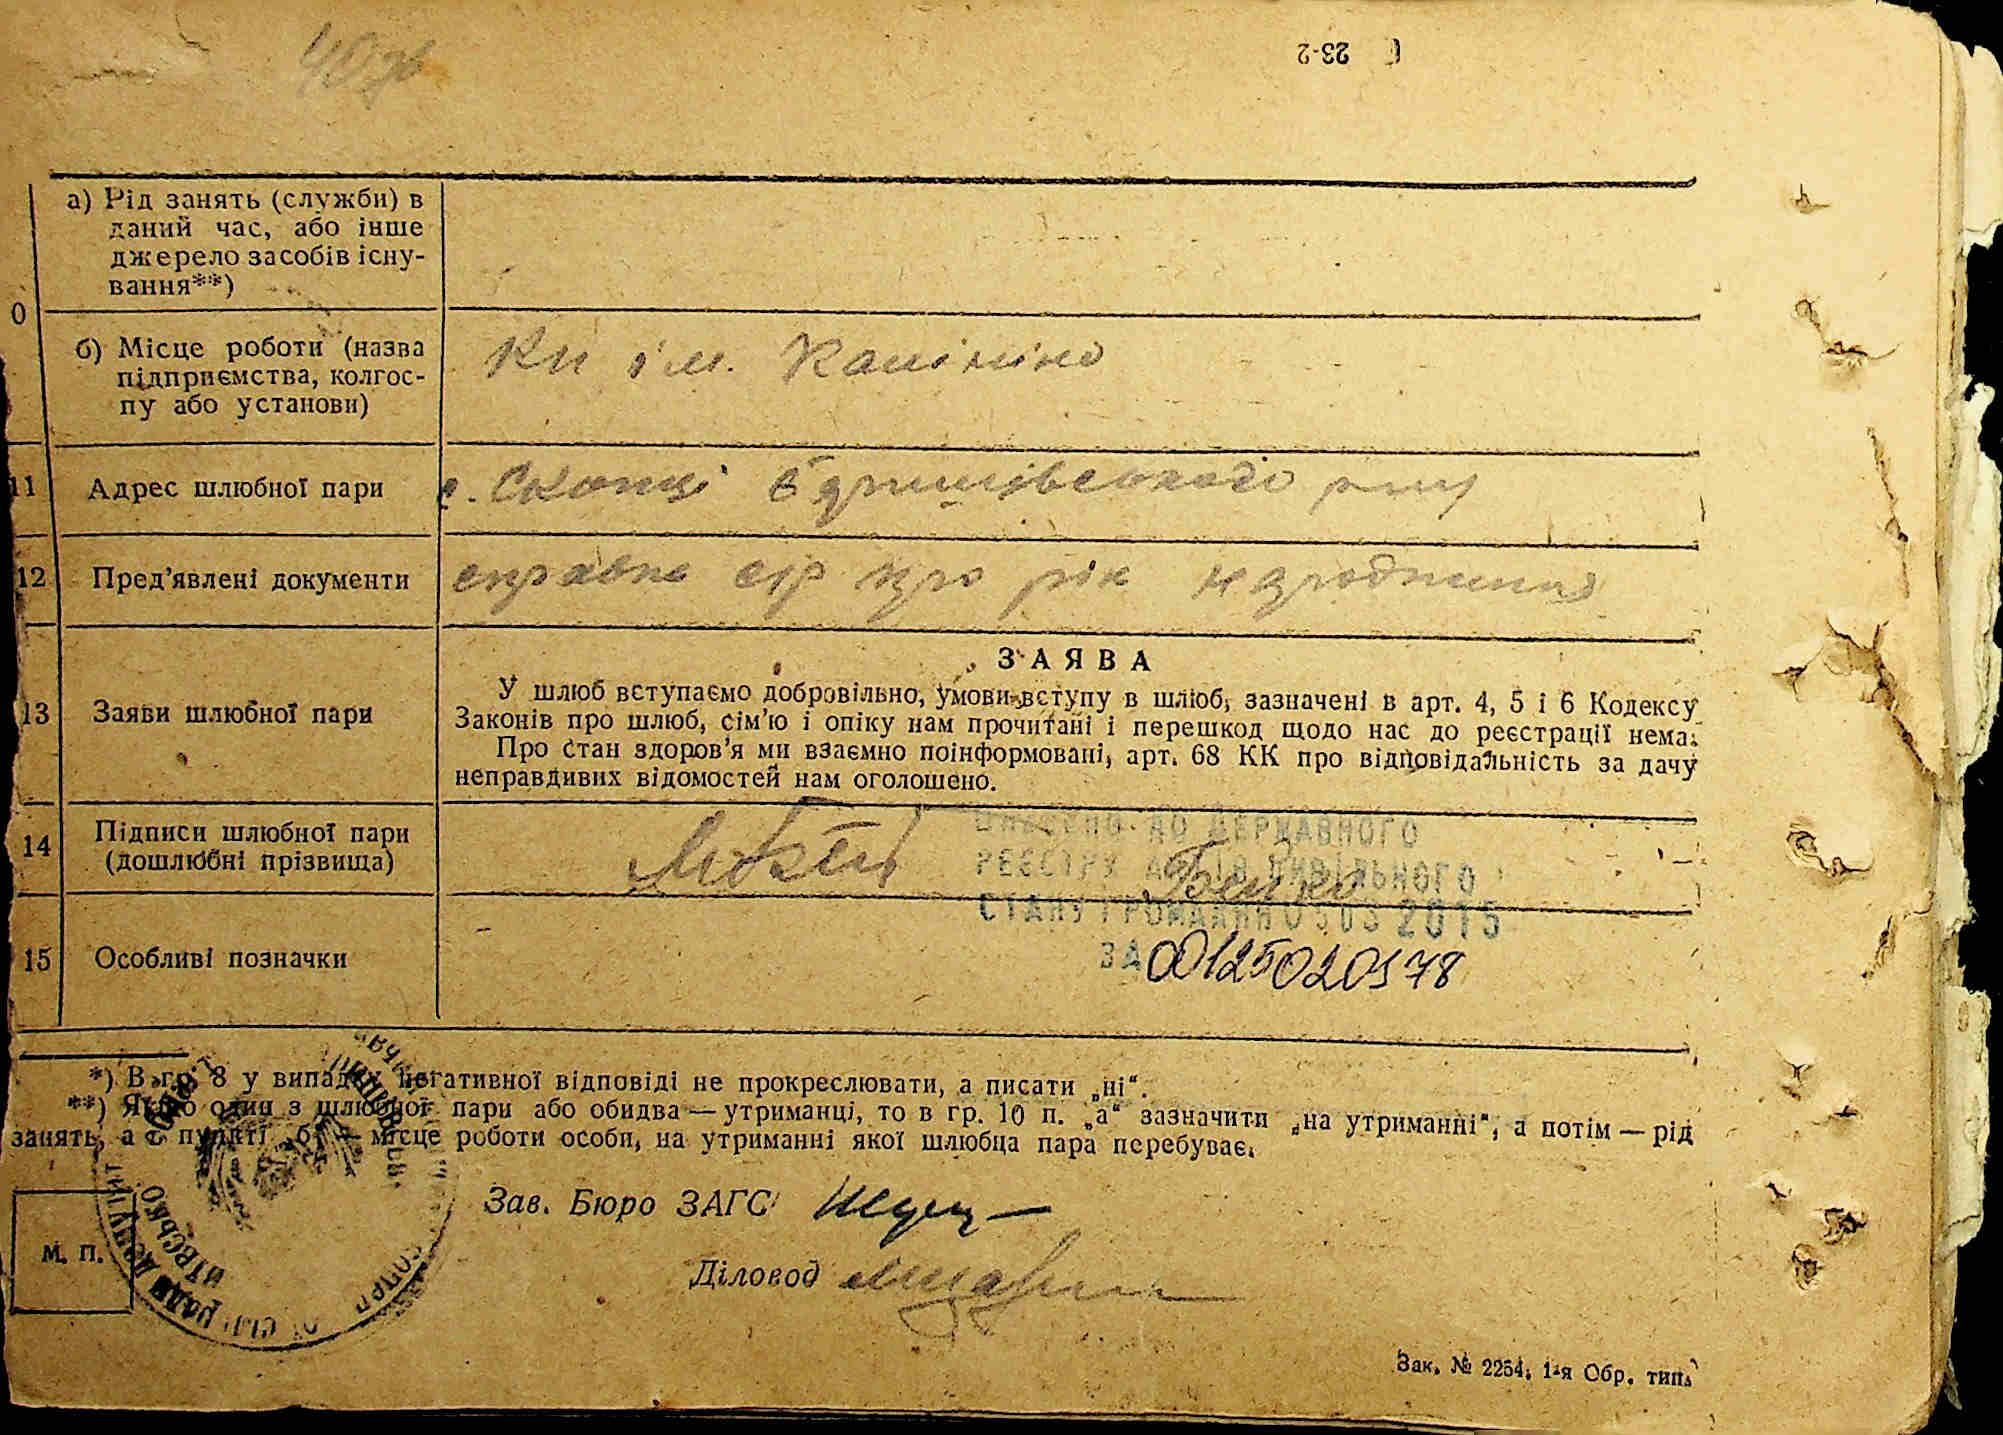 23-2
а) Рід занять (служби) в
даний час, або інше
джерело засобів існу-
вання**)
0
б) Місце роботи (назва
підприємства, колгос-
пу або установи)
Кп ім. Калініна
11 Адрес шлюбної пари
с. Скопці Баришівського р-ну
12 Пред’явлені документи
справка с/р про рік народження
13 Заяви шлюбної пари
ЗАЯВА
У шлюб вступаємо добровільно, умови вступу в шлюб, зазначені в арт. 4, 5 і 6 Кодексу
Законів про шлюб, сім’ю і опіку нам прочитані і перешкод щодо нас до реєстрації нема.
Про стан здоров’я ми взаємно поінформовані, арт. 68 КК про відповідальність за дачу
неправдивих відомостей нам оголошено.
14 Підписи шлюбної пари
(дошлюбні прізвища)
ВНЕСЕНО ДО ДЕРЖАВНОГО
РЕЄСТРУ АКТІВ ЦИВІЛЬНОГО
СТАНУ ГРОМАДЯН 0503 2015
ЗА 00125020578
15 Особливі позначки
-
*) В гр. 8 у випадкі негативної відповіді не прокреслювати, а писати „ні“.
**) Якщо один з шлюбної пари або обидва — утриманці, то в гр. 10 п. „а“ зазначити „на утриманні“, а потім — рід
занять, а в пункті „б“ — місце роботи особи, на утриманні якої шлюбца пара перебуває.
Зав. Бюро ЗАГС
Діловод
М. П.
Зак. № 2254. 1-я Обр. тип.